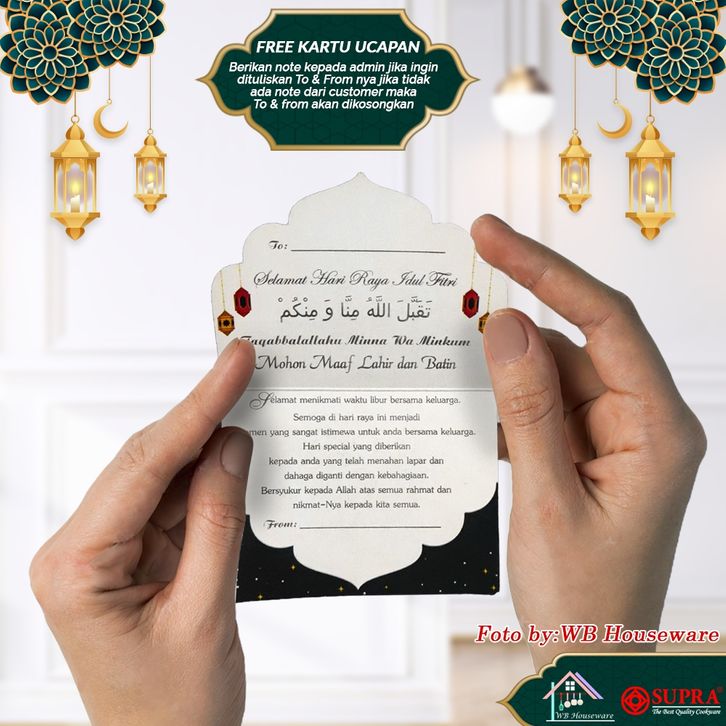 FREE KARTU UCAPAN
Berikan note kepada admin jika ingin
dituliskan To & From nya jika tidak
ada note dari customer maka
To & from akan dikosongkan
To:
Selamat Hari Raya Idul Fitri
تَقَبَّلَ اللَّهُ مِنَّا وَ مِنْكُمْ
Taqabbalallahu Minna Wa Minkum
Mohon Maaf Lahir dan Batin
Selamat menikmati waktu libur bersama keluarga.
Semoga di hari raya ini menjadi
men yang sangat istimewa untuk anda bersama keluarga.
Hari special yang diberikan
kepada anda yang telah menahan lapar dan
dahaga diganti dengan kebahagiaan.
Bersyukur kepada Allah atas semua rahmat dan
nikmat-Nya kepada kita semua.
From:
Foto by:WB Houseware
WB Houseware
SUPRA
The Best Quality Cookware